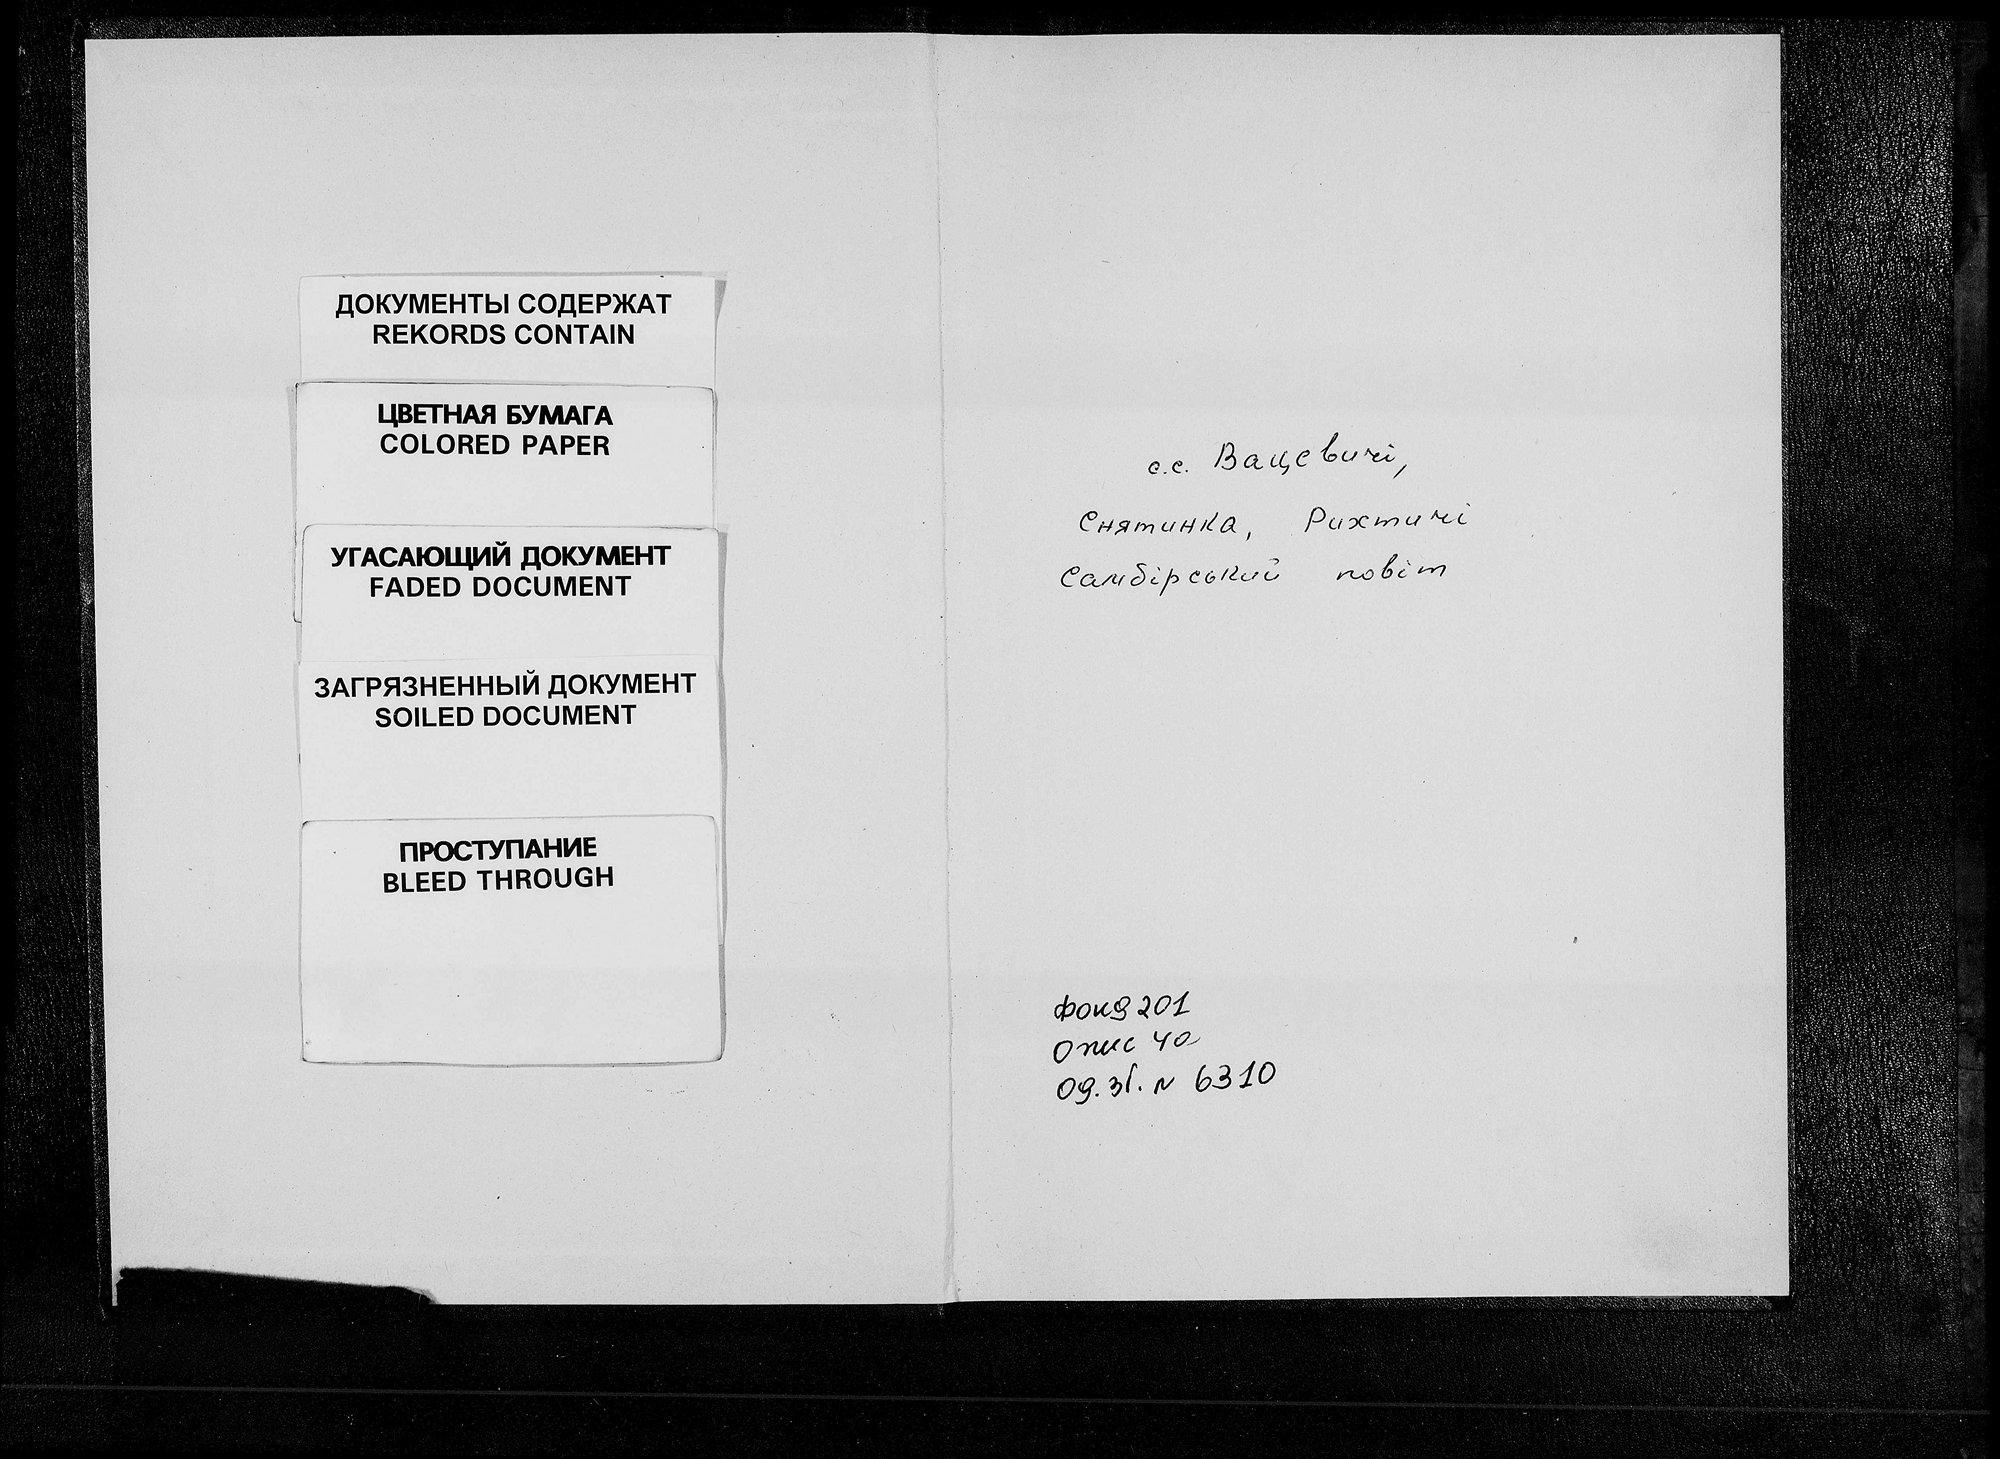 ДОКУМЕНТЫ СОДЕРЖАТ
REKORDS CONTAIN
ЦВЕТНАЯ БУМАГА
COLORED PAPER
УГАСАЮЩИЙ ДОКУМЕНТ
FADED DOCUMENT
ЗАГРЯЗНЕННЫЙ ДОКУМЕНТ
SOILED DOCUMENT
ПРОСТУПАНИЕ
BLEED THROUGH
с.с. Вацевичі,
Снятинка, Рихтичі
Самбірський повіт
фонд 201
Опис 4а
Од. зб. N 6310